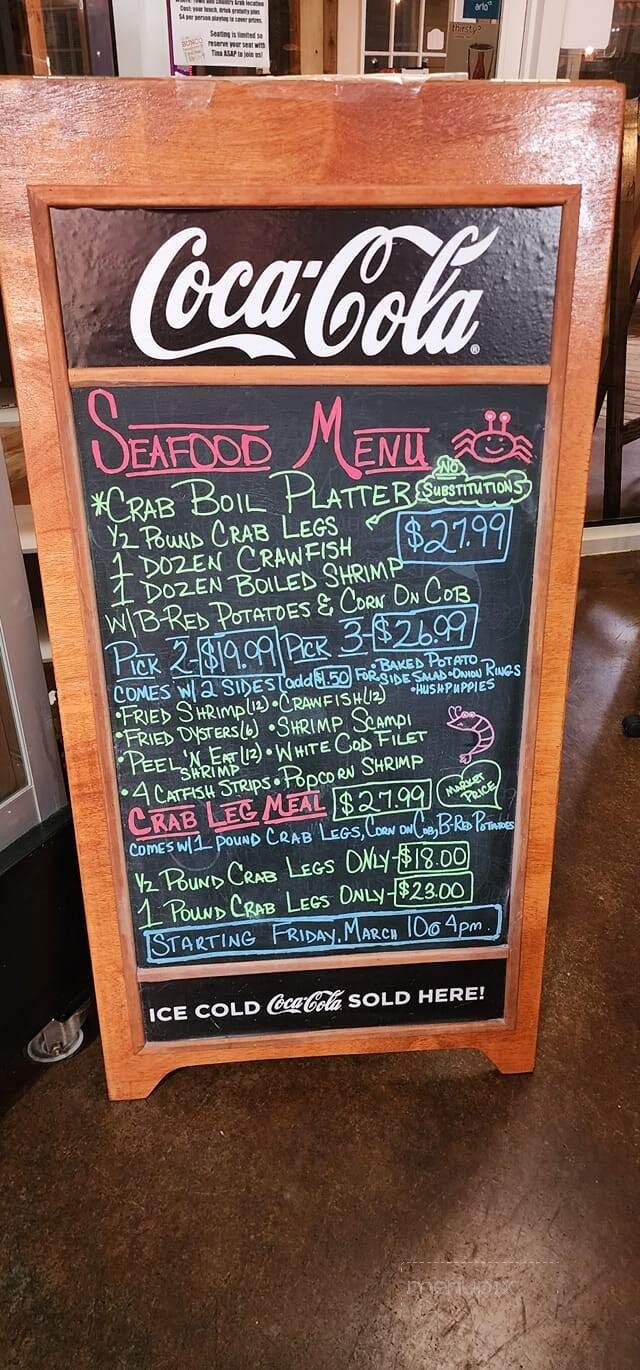 Cost: your lunch, drink gratuity plus
$4 per person playing to cover prizes.
Seating is limited so
reserve your seat with
Tina ASAP to join us!
BUNCO
thirsty?
arlo
Coca-Cola
SEAFOOD MENU
*CRAB BOIL PLATTER NO SUBSTITUTIONS
1/2 POUND CRAB LEGS $27.99
1 DOZEN CRAWFISH
1 DOZEN BOILED SHRIMP
W/B-RED POTATOES & CORN ON COB
PICK 2-$19.99 PICK 3-$26.99
COMES W/ 2 SIDES (add $1.50 FOR •BAKED POTATO
SIDE SALAD •ONION RINGS
•HUSHPUPPIES
•FRIED SHRIMP(12) •CRAWFISH(12)
•FRIED OYSTERS(6) •SHRIMP SCAMPI
•PEEL 'N EAT (12) •WHITE COD FILET
SHRIMP
•4 CATFISH STRIPS •POPCORN SHRIMP
CRAB LEG MEAL $27.99 MARKET PRICE
COMES W/1 POUND CRAB LEGS, CORN ON COB, B-RED POTATOES
1/2 POUND CRAB LEGS ONLY-$18.00
1 POUND CRAB LEGS ONLY-$23.00
STARTING FRIDAY, MARCH 10@4pm.
ICE COLD Coca-Cola SOLD HERE!
menupix